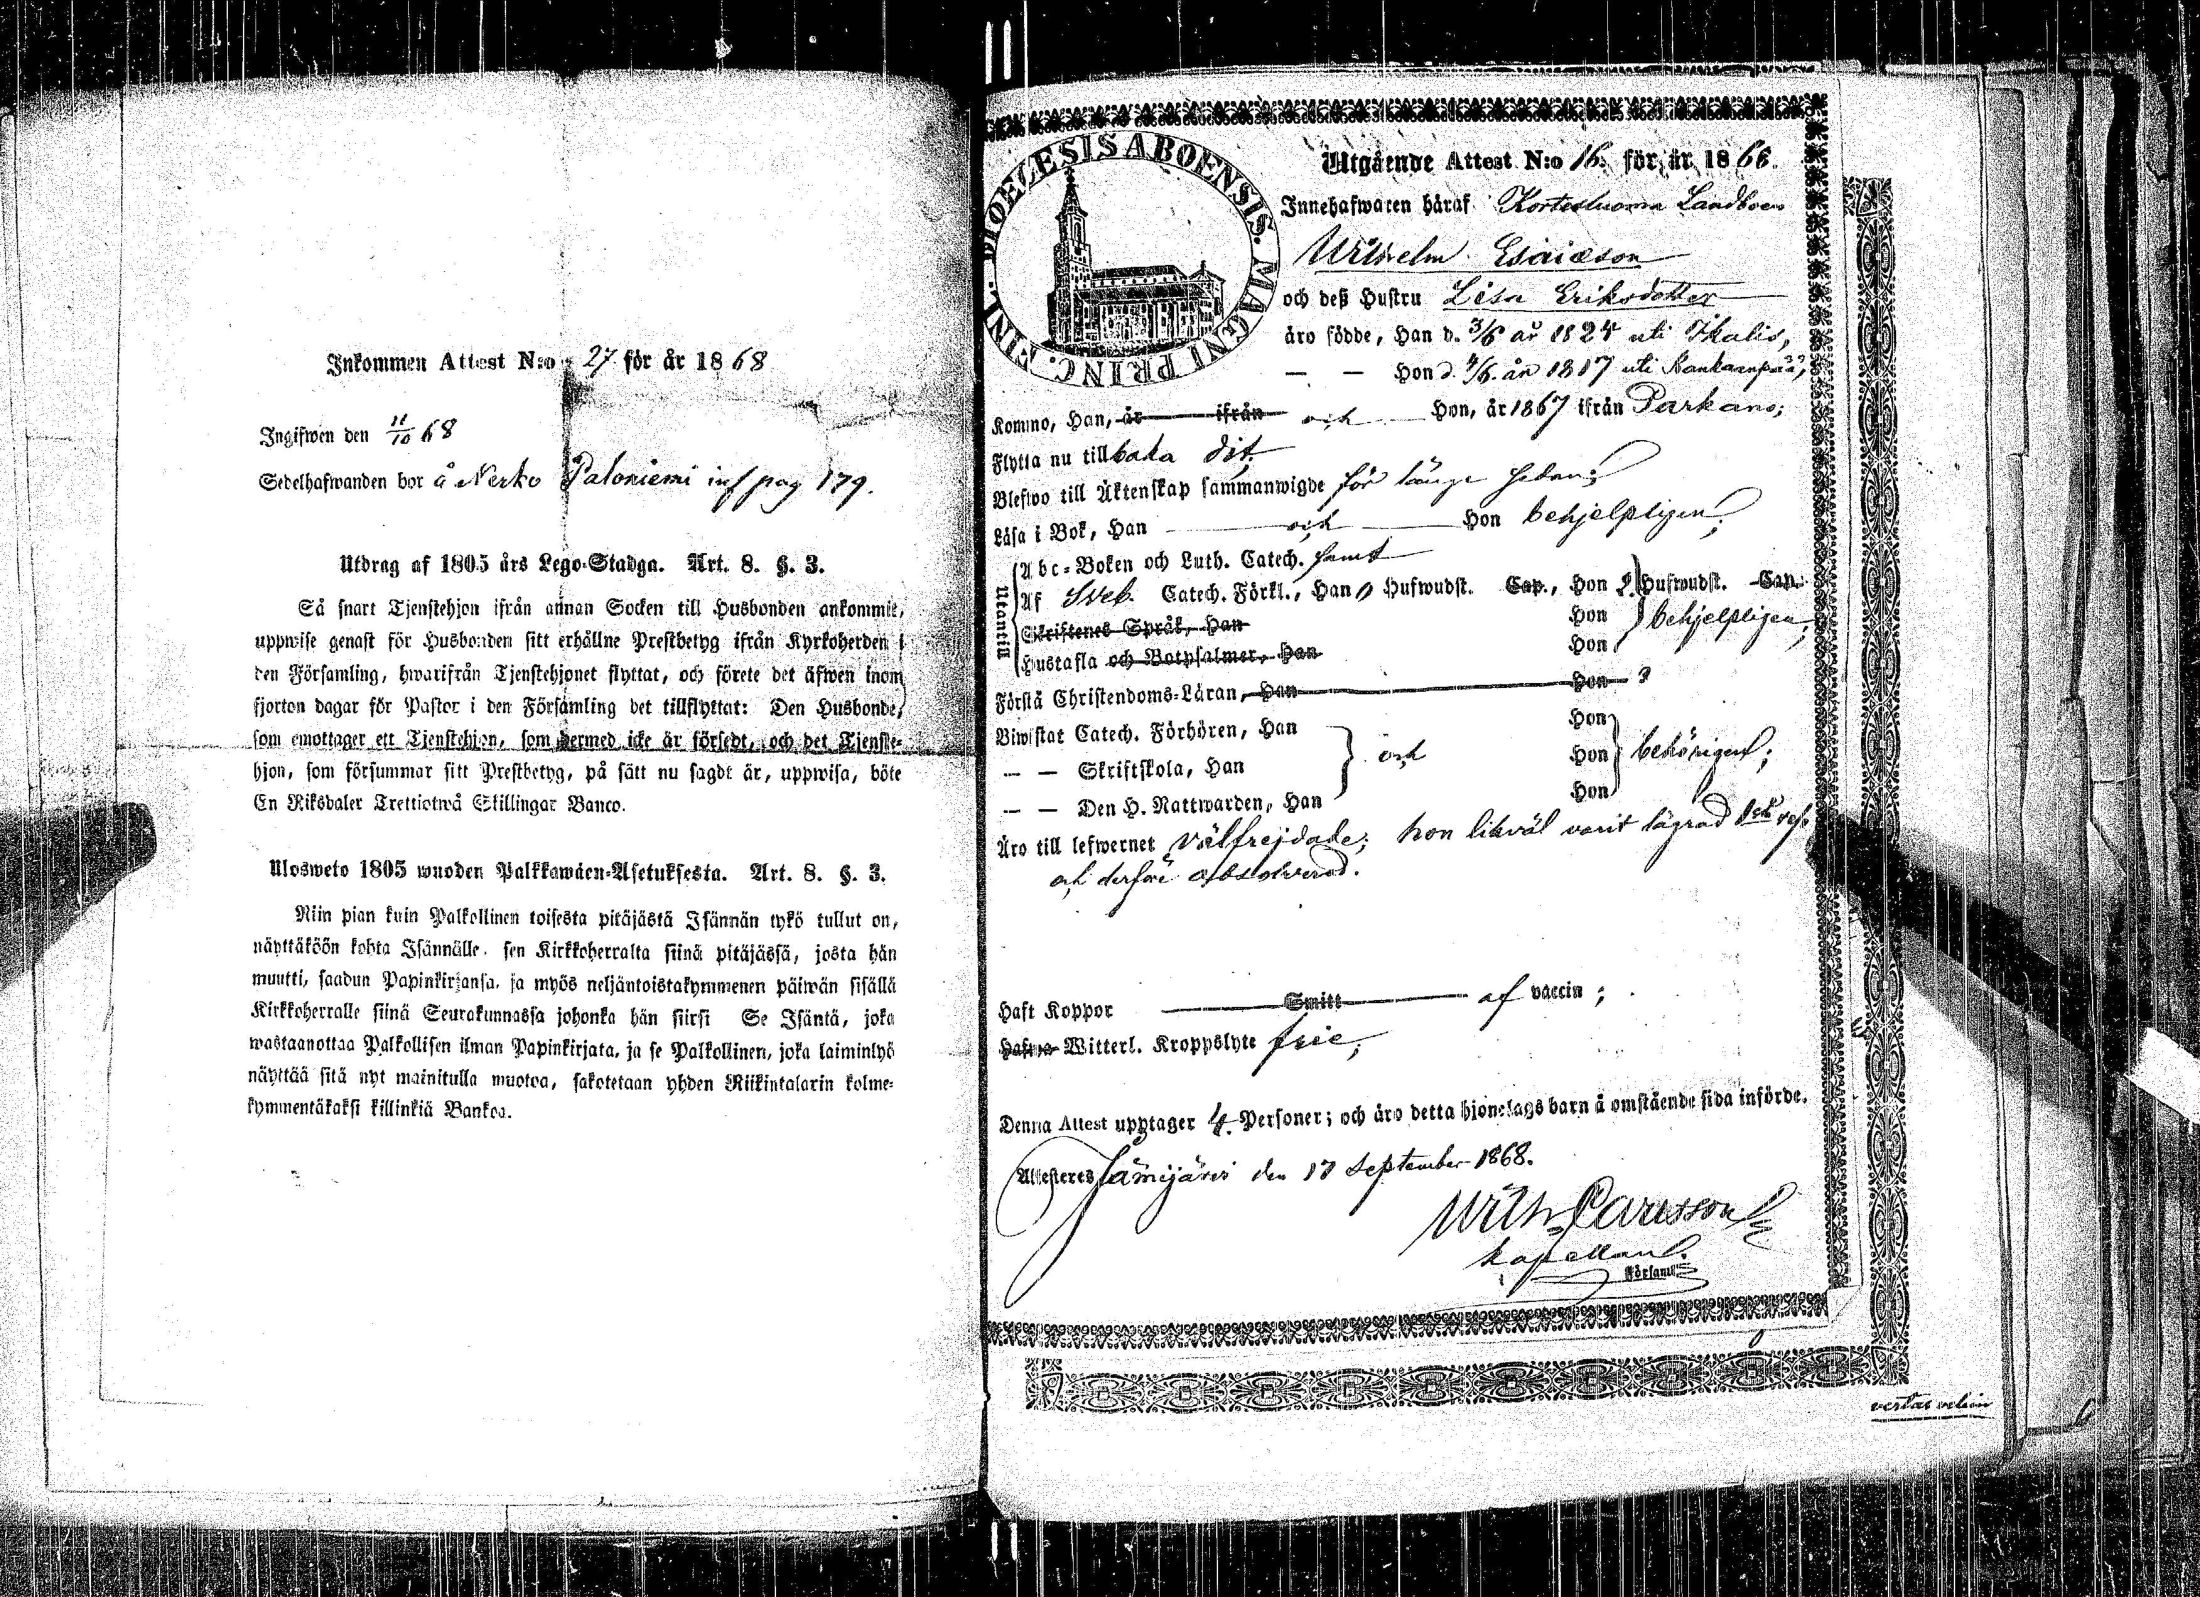 Inkommen Attest N:o 27 för år 1868
Ingifwen den 11/10 68
Sedelhafwanden bor å Nerko Paloniemi inf pag 179.
Utdrag af 1805 års Lego-Stadga. Art. 8. §. 3.
Så snart Tjenstehjon ifrån annan Socken till Husbonden ankommit,
uppwise genast för Husbonden sitt erhållne Prestbetyg ifrån Kyrkoherden i
den Församling, hwarifrån Tjenstehjonet flyttat, och förete det äfwen inom
fjorton dagar för Pastor i den Församling det tillflyttat: Den Husbonde,
som emottager ett Tjenstehjon, som dermed icke är försedt, och det Tjenste-
hjon, som försummar sitt Prestbetyg, på sätt nu sagdt är, uppwisa, böte
En Riksdaler Trettiotwå Skillingar Banco.
Ulosweto 1805 wuoden Palkkawäen-Asetuksesta. Art. 8. §. 3.
Niin pian kuin Palkollinen toisesta pitäjästä Isännän tykö tullut on,
näyttäköön kohta Isännälle sen Kirkkoherralta siinä pitäjässä, josta hän
muutti, saadun Papinkirjansa, ja myös neljäntoistakymmenen päiwän sisällä
Kirkkoherralle siinä Seurakunnassa johonka hän siirsi Se Isäntä, joka
wastaanottaa Palkollisen ilman Papinkirjata, ja se Palkollinen, joka laiminlyö
näyttää sitä nyt mainitulla muotoa, sakotetaan yhden Riikintalarin kolme-
kymmentäkaksi killinkiä Bankoa.
DIOECESIS ABOENSIS. MAGNI PRINC. FINL.
Utgående Attest N:o 16. för år 1868.
Innehafwaren häraf Kortesluoma Landboen
Wilhelm Esaiæson
och deß Hustru Lisa Eriksdotter
äro födde, Han d. 3/6 år 1824 uti Ikalis,
— — Hon d. 4/6. år 1817 uti Kankaanpää,
Kommo, Han, år ifrån och Hon, år 1867 ifrån Parkano;
Flytta nu tillbaka dit.
Blefwo till Äktenskap sammanwigde för länge sedan;
Läsa i Bok, Han och Hon behjelpligen;
Utantill
Abc-Boken och Luth. Catech. samt
Af Sveb. Catech. Förkl., Han 0 Hufwudst. Cap., Hon 2. Hufwudst. Cap.
Skriftenes Språk, Han Hon behjelpligen;
Hustafla och Botpsalmer, Han Hon
Förstå Christendoms-Läran, Han Hon
Biwistat Catech. Förhören, Han Hon
— — Skriftskola, Han och Hon behörigen;
— — Den H. Nattwarden, Han Hon
Äro till lefwernet välfrejdade; hon likväl varit lägrad
och derför absolverad.
Haft Koppor Smitt af vaccin;
Hafwa Witterl. Kroppslyte frie;
Denna Attest upptager 4. Personer; och äro detta hjonelags barn å omstående sida införde.
Attesteres Jämijärvi den 17 September 1868.
Wilh. Carlsson
kapellan.
Församl:s
vertas